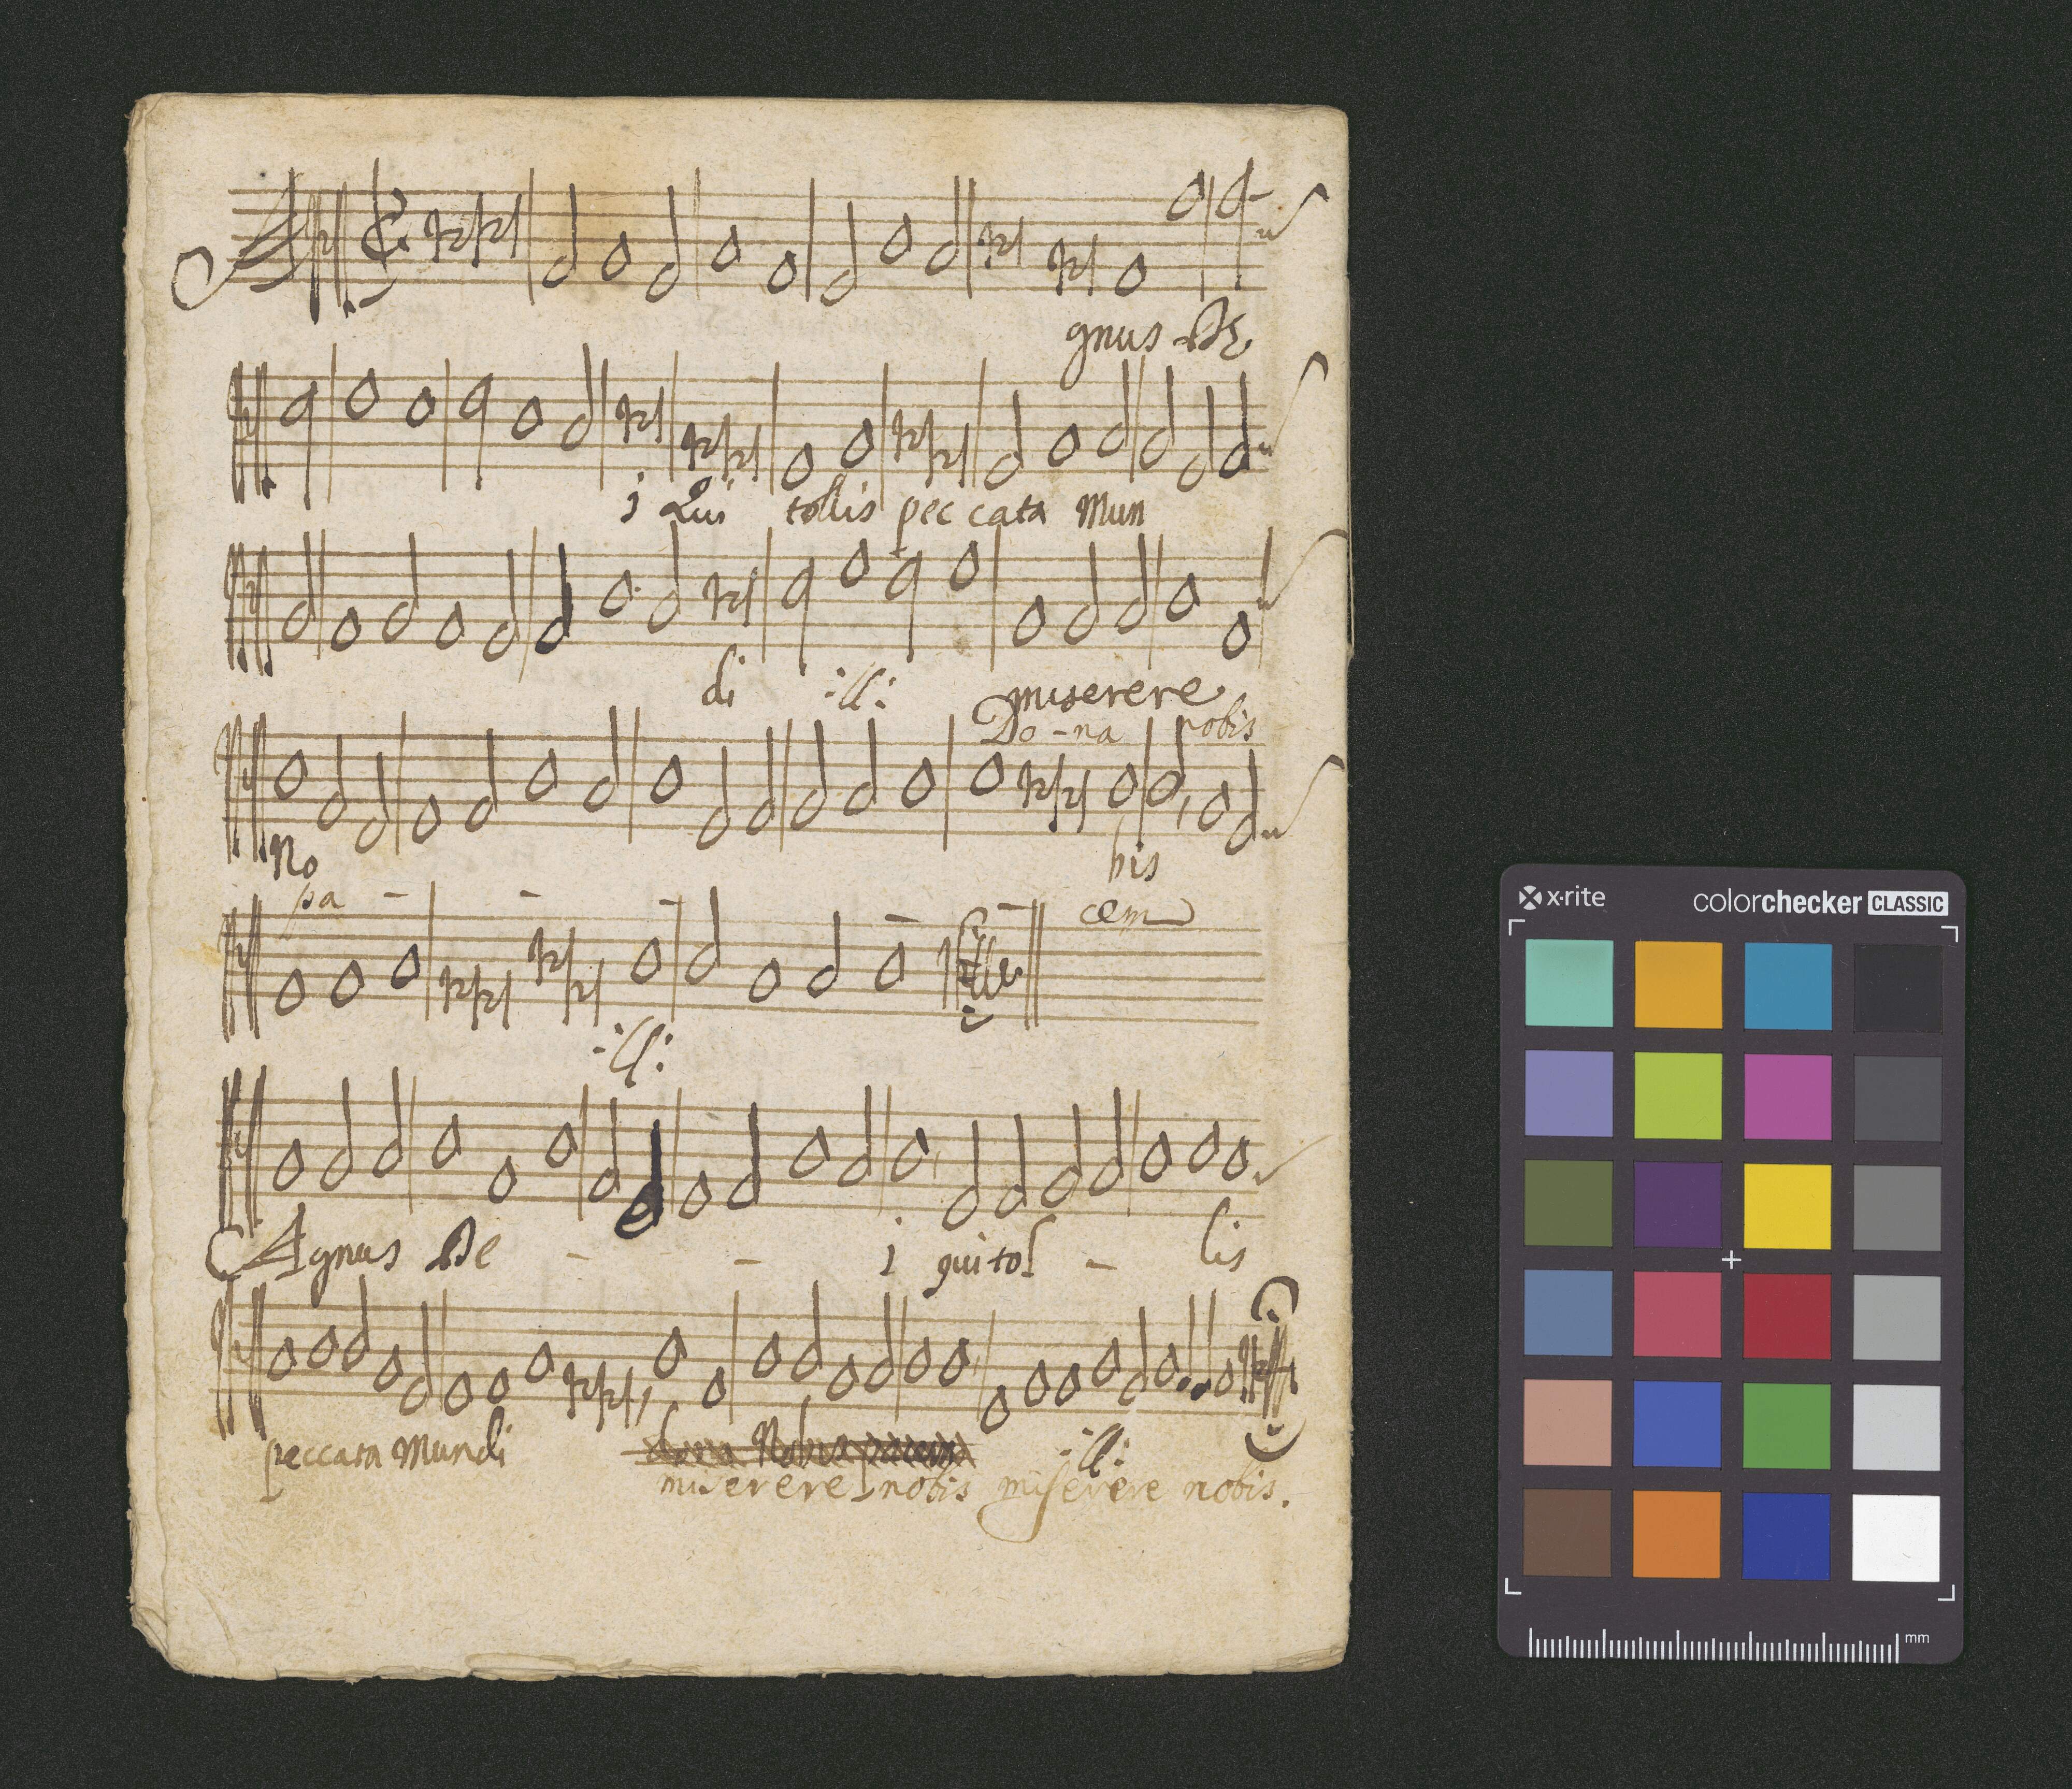 A
gnus De
i Qui tollis peccata Mun
di :ll: miserere
Do - na nobis
No bis
pa - - - - - cem
:ll:
Agnus De - - i qui tol - lis
peccata Mundi dona Nobis pacem :ll:
miserere nobis miserere nobis.
x·rite colorchecker CLASSIC
mm